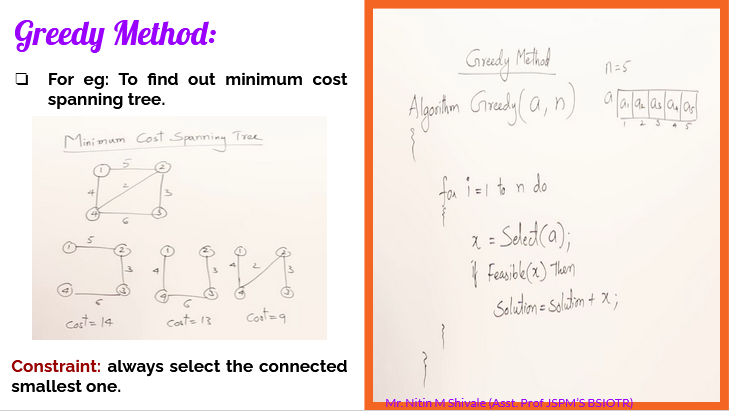 Greedy Method:
❑ For eg: To find out minimum cost
spanning tree.
Minimum Cost Spanning Tree
1 5 2
4 2 3
4 6 3
1 5 2 1 2 1 2
3 4 3 4 2 3
4 6 3 4 6 3 4 3
Cost = 14 Cost = 13 Cost = 9
Constraint: always select the connected
smallest one.
Greedy Method
n=5
Algorithm Greedy(a, n)
a a1 a2 a3 a4 a5
1 2 3 4 5
{
for i=1 to n do
{
x = Select(a);
if Feasible(x) Then
Solution = solution + x;
}
}
Mr. Nitin M Shivale (Asst. Prof JSPM'S BSIOTR)